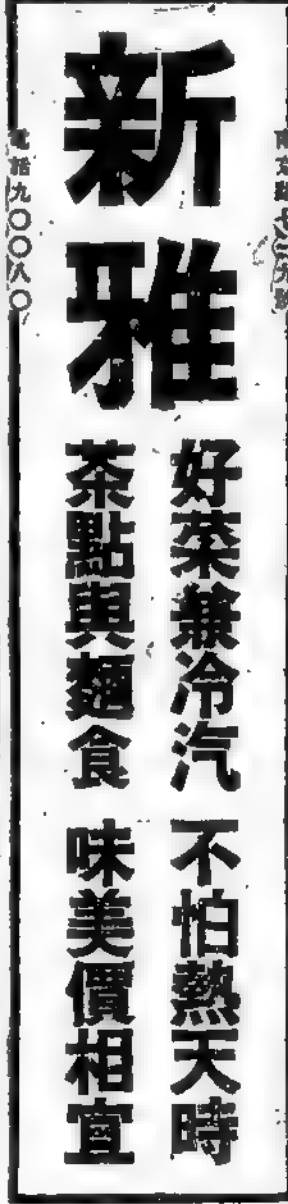 新雅
好菜兼冷汽 不怕熱天時
茶點與麵食 味美價相宜
電話九〇〇八〇